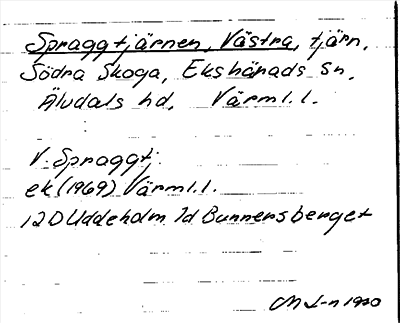 Spraggtjärnen, Västra, tjärn,
Södra Skoga, Ekshärads sn,
Älvdals hd, Värml. l.
V. Spraggtj.
ek (1969) Värml. l.
12D Uddeholm 7d Bunnersberget
1970